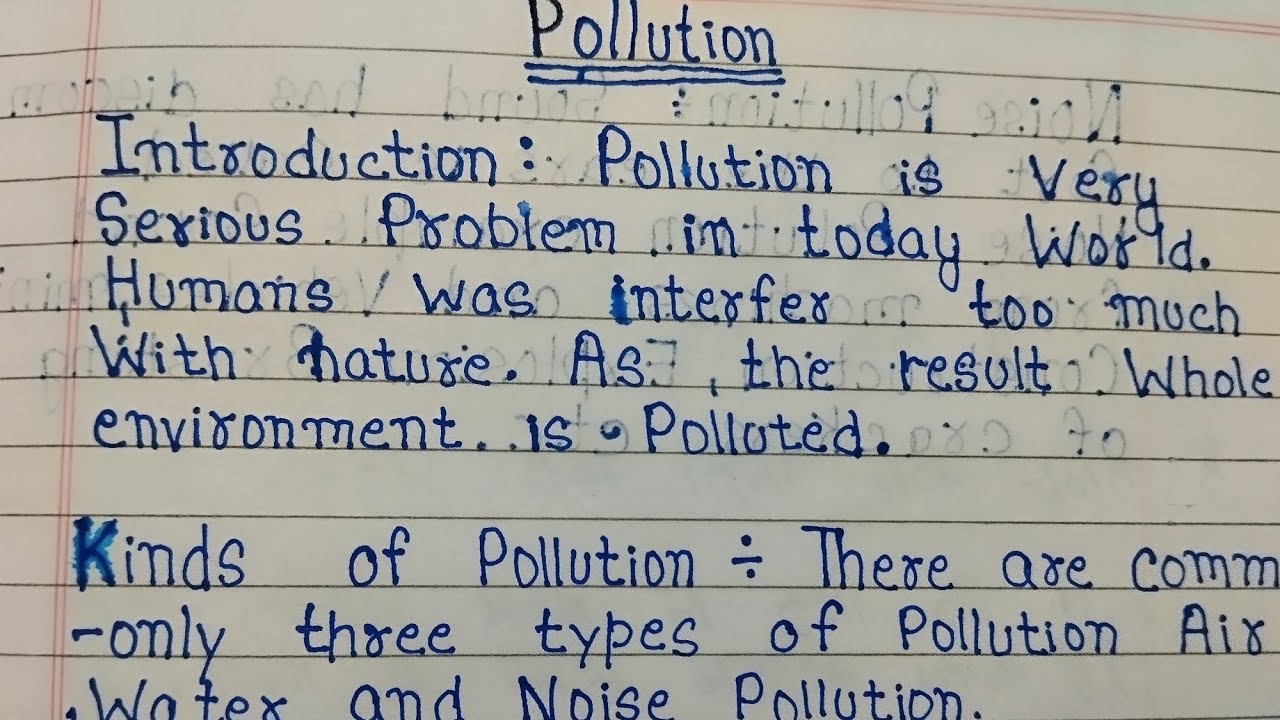 Pollution
Introduction: Pollution is Very
Serious Problem in today World.
Humans was interfer too much
With nature. As the result Whole
environment is Polluted.
Kinds of Pollution ÷ There are comm
-only three types of Pollution Air
Water and Noise Pollution.